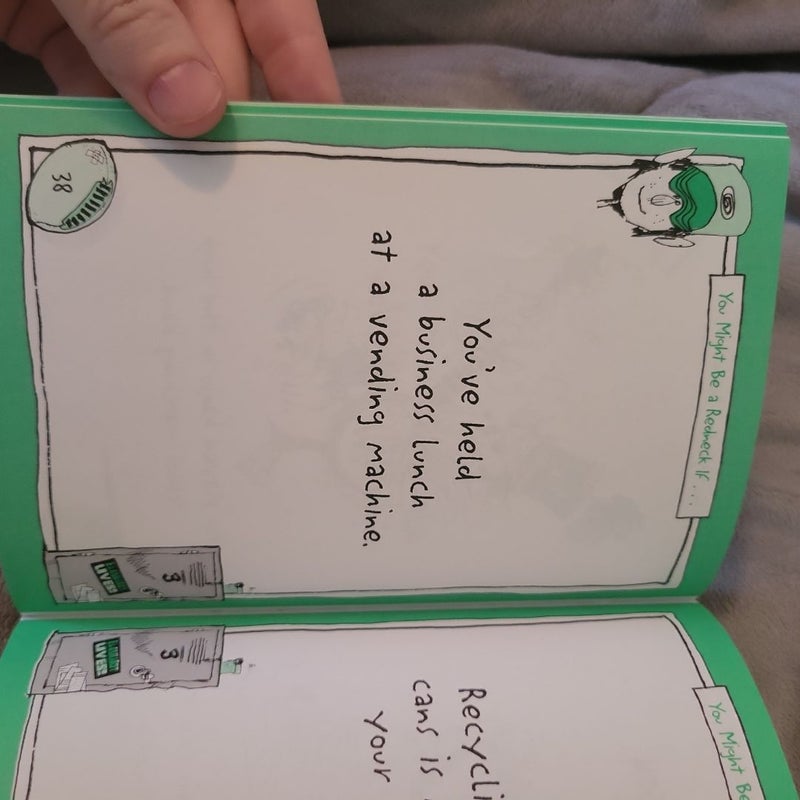 You Might Be a Redneck If . . .
You've held
a business lunch
at a vending machine.
38
3
LIVES!
You Might Be
Recycli
cans is
your
3
LIVES!